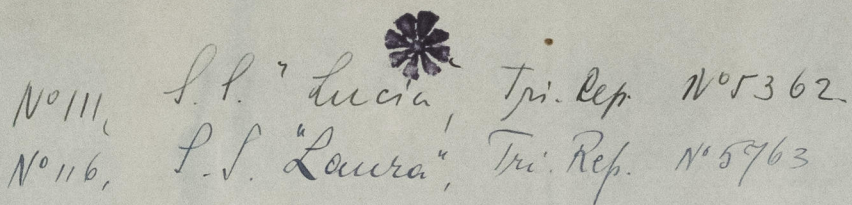 No 111, S.S. "Lucia", Tri. Rep. No 5362
No 116, S.S. "Laura", Tri. Rep. No 5763